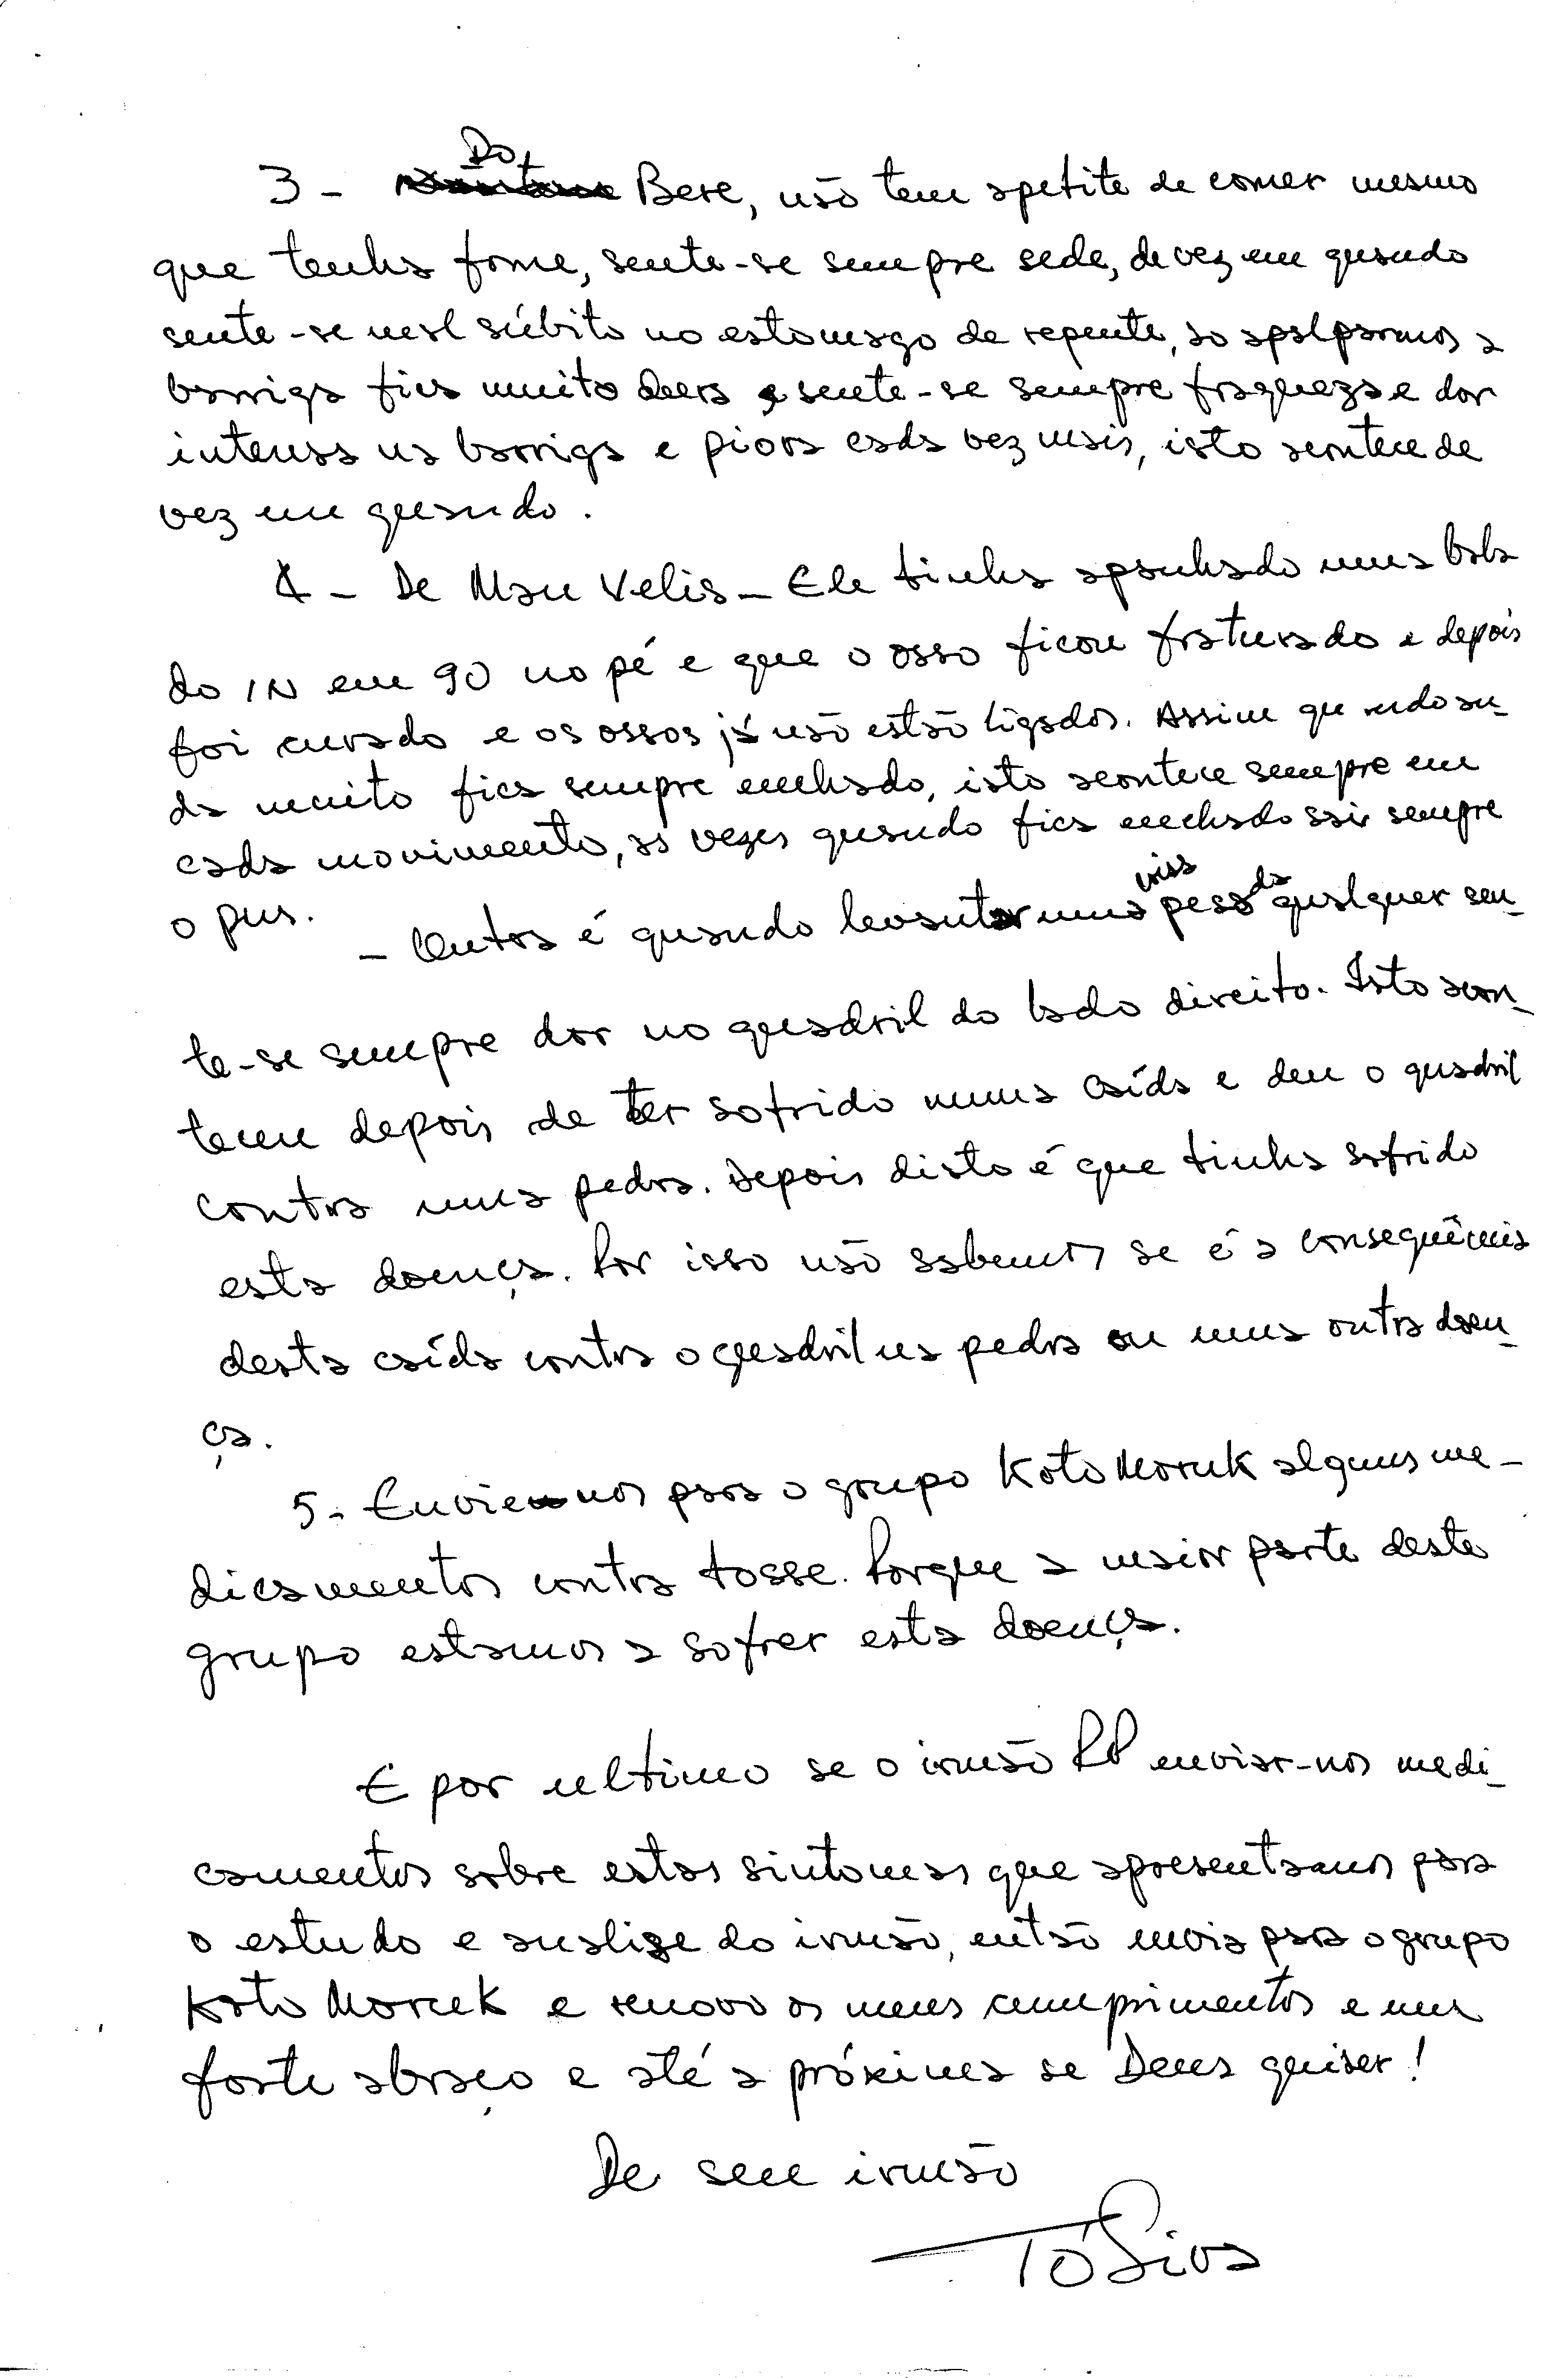 3 - Do Bere, não tem apetite de comer mesmo
que tenha fome, sente-se sempre sede, de vez em quando
sente-se mal súbito no estomago de repente, ao apalparmos a
barriga fica muito dura e sente-se sempre fraqueza e dor
intensa na barriga e piora cada vez mais, isto acontece de
vez em quando.
4 - De Mau Velis - Ele tinha apanhado uma bala
do IN em 90 no pé e que o osso ficou fraturado e depois
foi curado e os ossos já não estão ligados. Assim quando an-
da muito fica sempre enchado, isto acontece sempre em
cada movimento, as vezes quando fica enchado sai sempre
o pus.
- Outra é quando levantar uma coisa pesada qualquer sen-
te-se sempre dor no quadril do lado direito. Isto acon-
teceu depois de ter sofrido numa caída e deu o quadril
contra uma pedra. Depois disto é que tinha sofrido
esta doença. Por isso não sabemos se é a consequência
desta caída contra o quadril na pedra ou uma outra doen-
ça.
5. Envie nos para o grupo Koto Moruk alguns me-
dicamentos contra tosse. Porque a maior parte deste
grupo estamos a sofrer esta doença.
E por ultimo se o irmão RP enviar-nos medi-
camentos sobre estas sintomas que apresentamos para
o estudo e analise do irmão, então envia para o grupo
Koto Moruk e renovo os meus cumprimentos e um
forte abraço e até a próxima se Deus quiser!
De seu irmão
Tó Siva